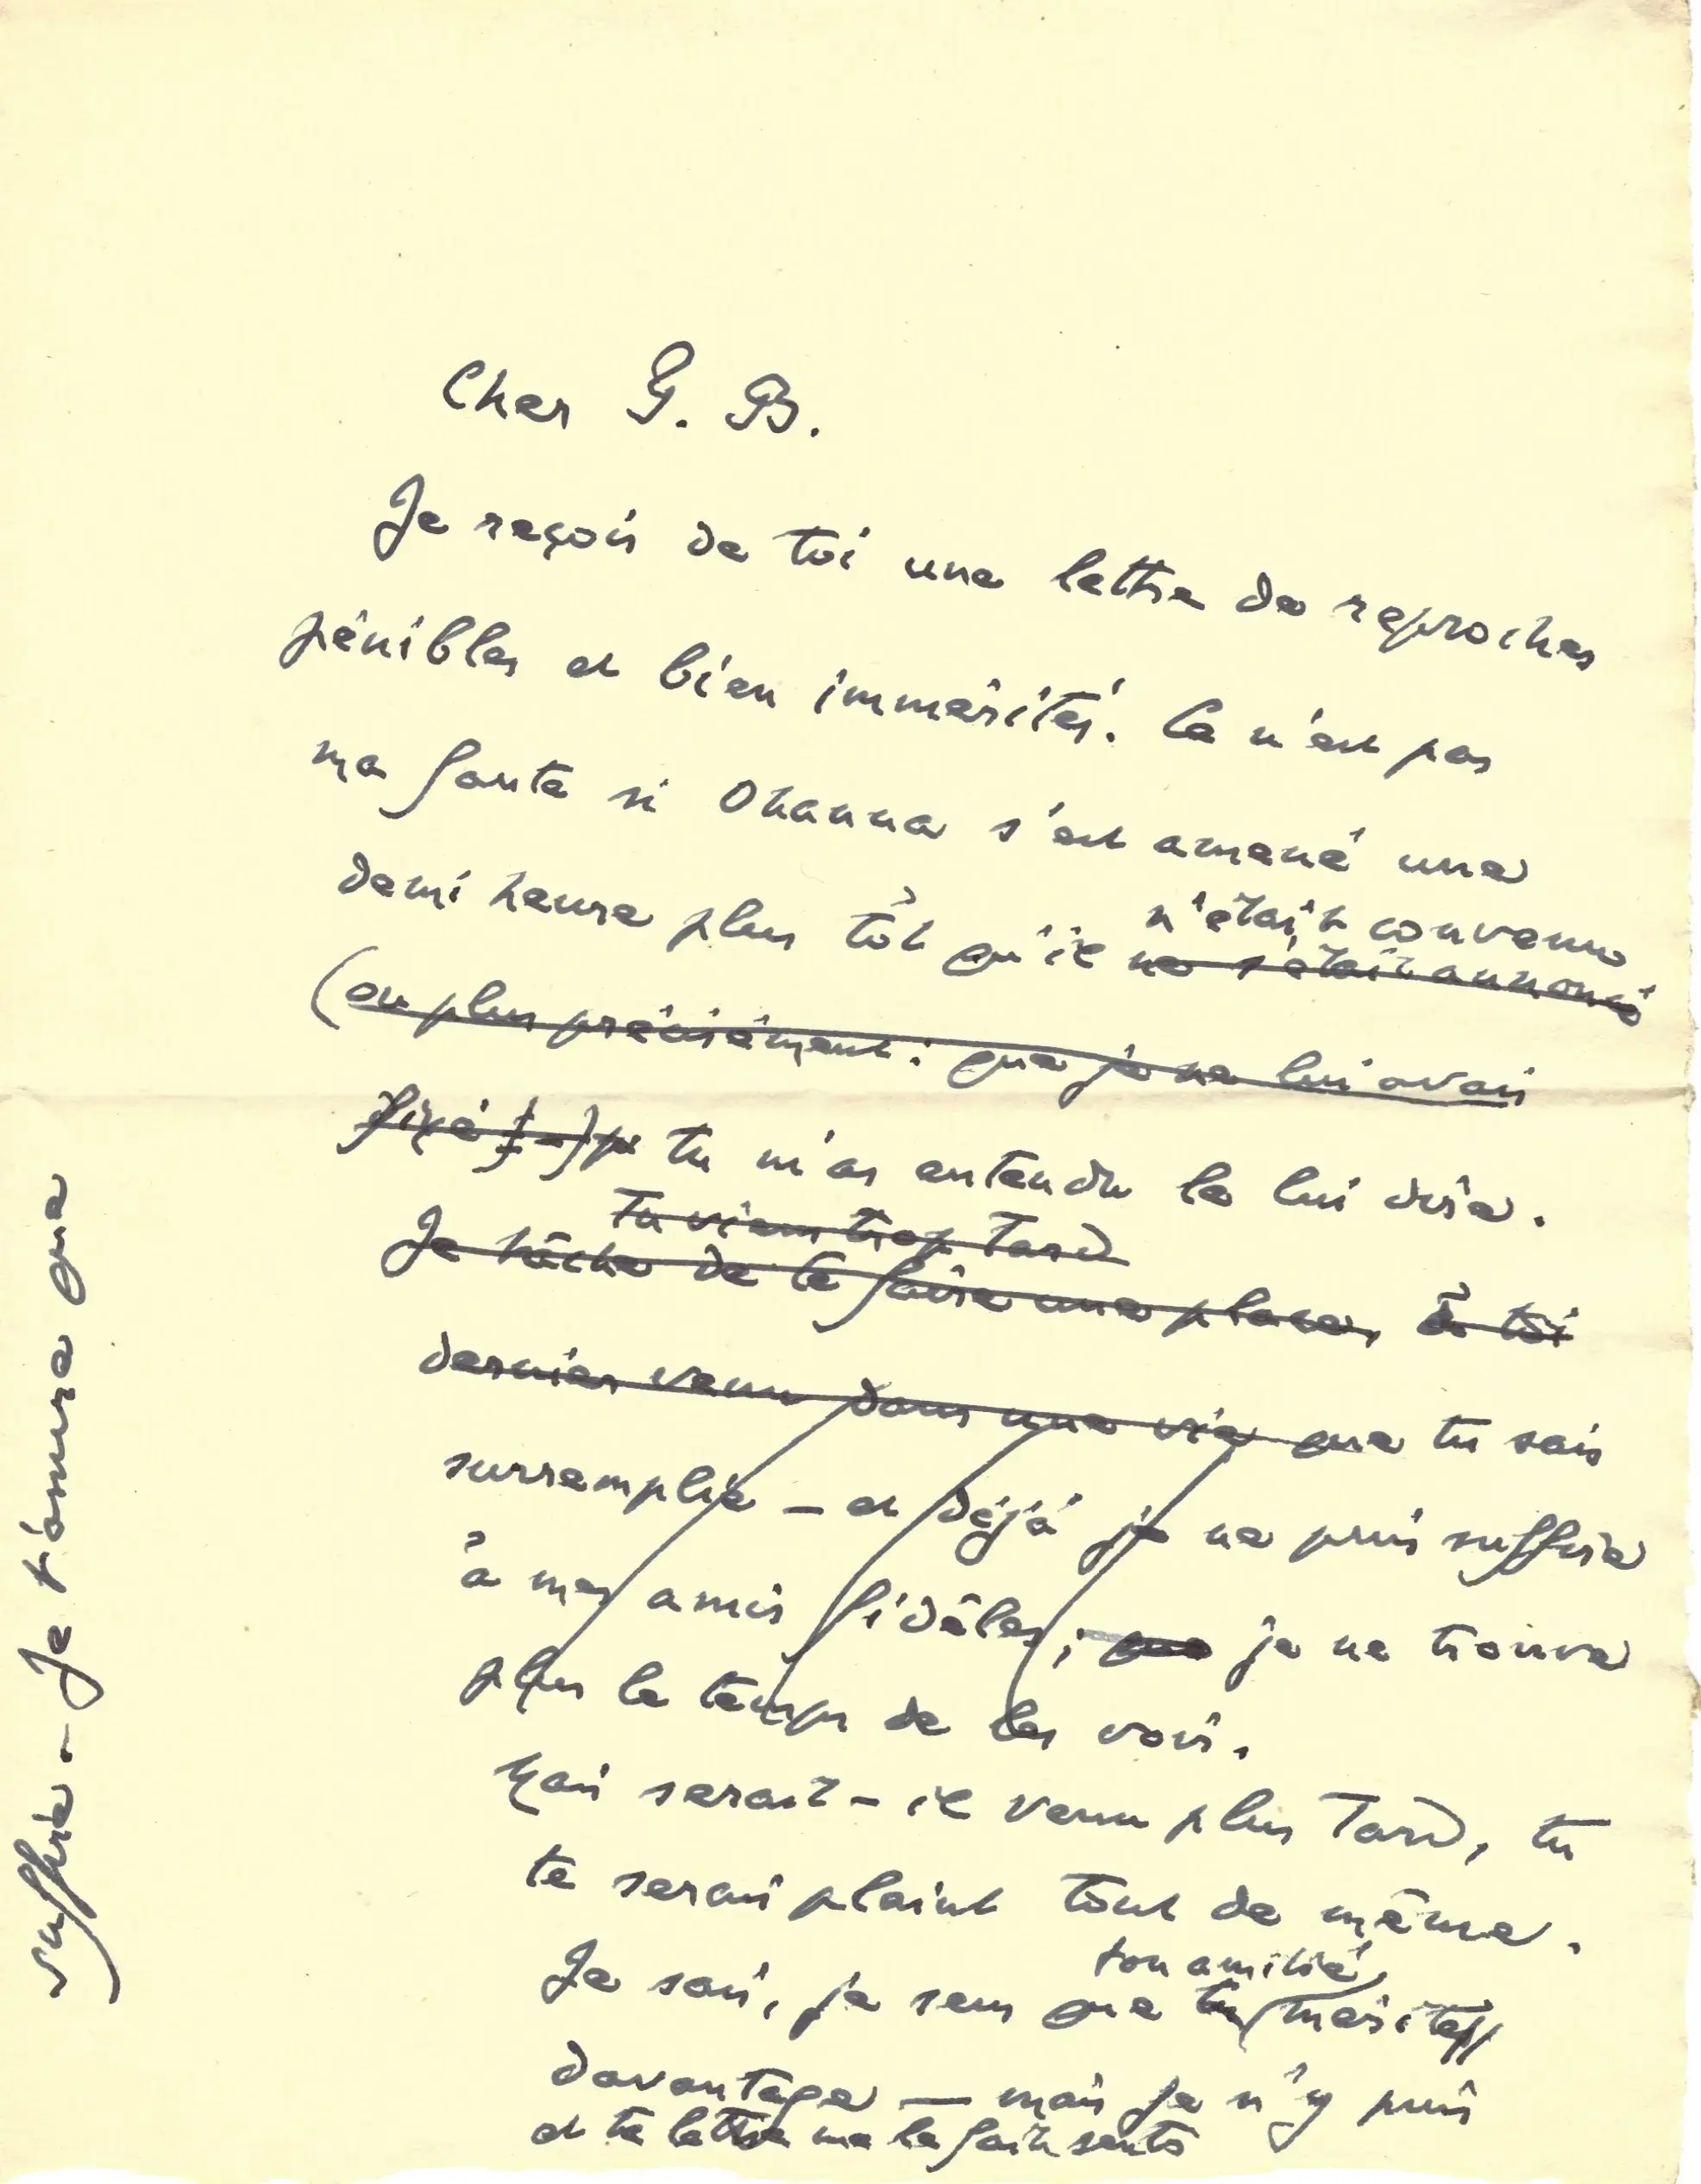 Cher G. B.
Je reçois de toi une lettre de reproches
pénibles et bien immérités. Ce n'est pas
ma faute si Ohanna s'est amené une
demi heure plus tôt qu'il
n'était convenu
ne s'était annoncé
(ou plus précisément : que je ne lui avais
fixé tu m'as entendu le lui dire.
Tu viens trop tard
Je tâche de te faire une place, à toi
dernier venu dans une vie que tu sais
surremplie – et déjà je ne puis suffire
à mes amis fidèles; que je ne trouve
plus le temps de les voir.
Mais serait-il venu plus tard, tu
te serais plaint tout de même.
ton amitié
Je sais, je sens que tu mérites
davantage — mais je n'y puis
et ta lettre me le fait sentir
suffire – Je t'assure que